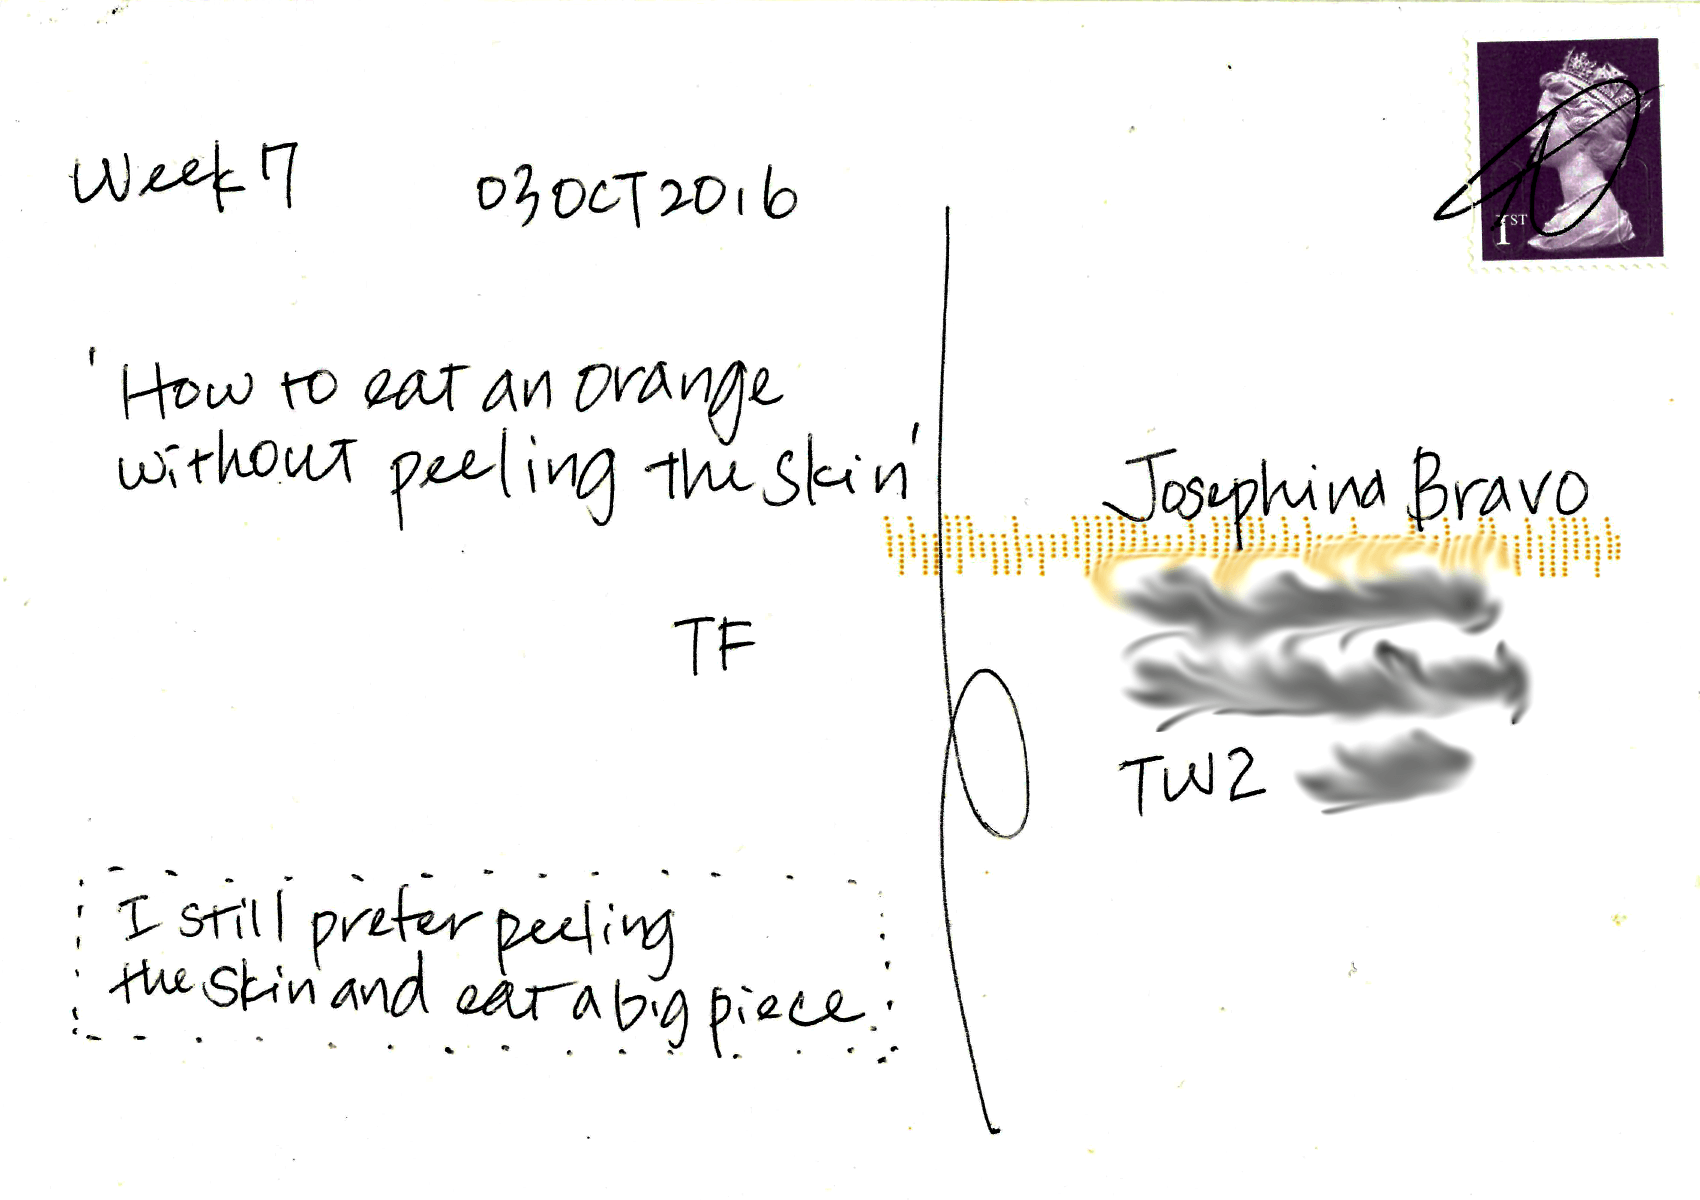 Week 7
03 OCT 2016
'How to eat an orange
without peeling the skin'
TF
I still prefer peeling
the skin and eat a big piece.
1ST
Josephina Bravo
TW2